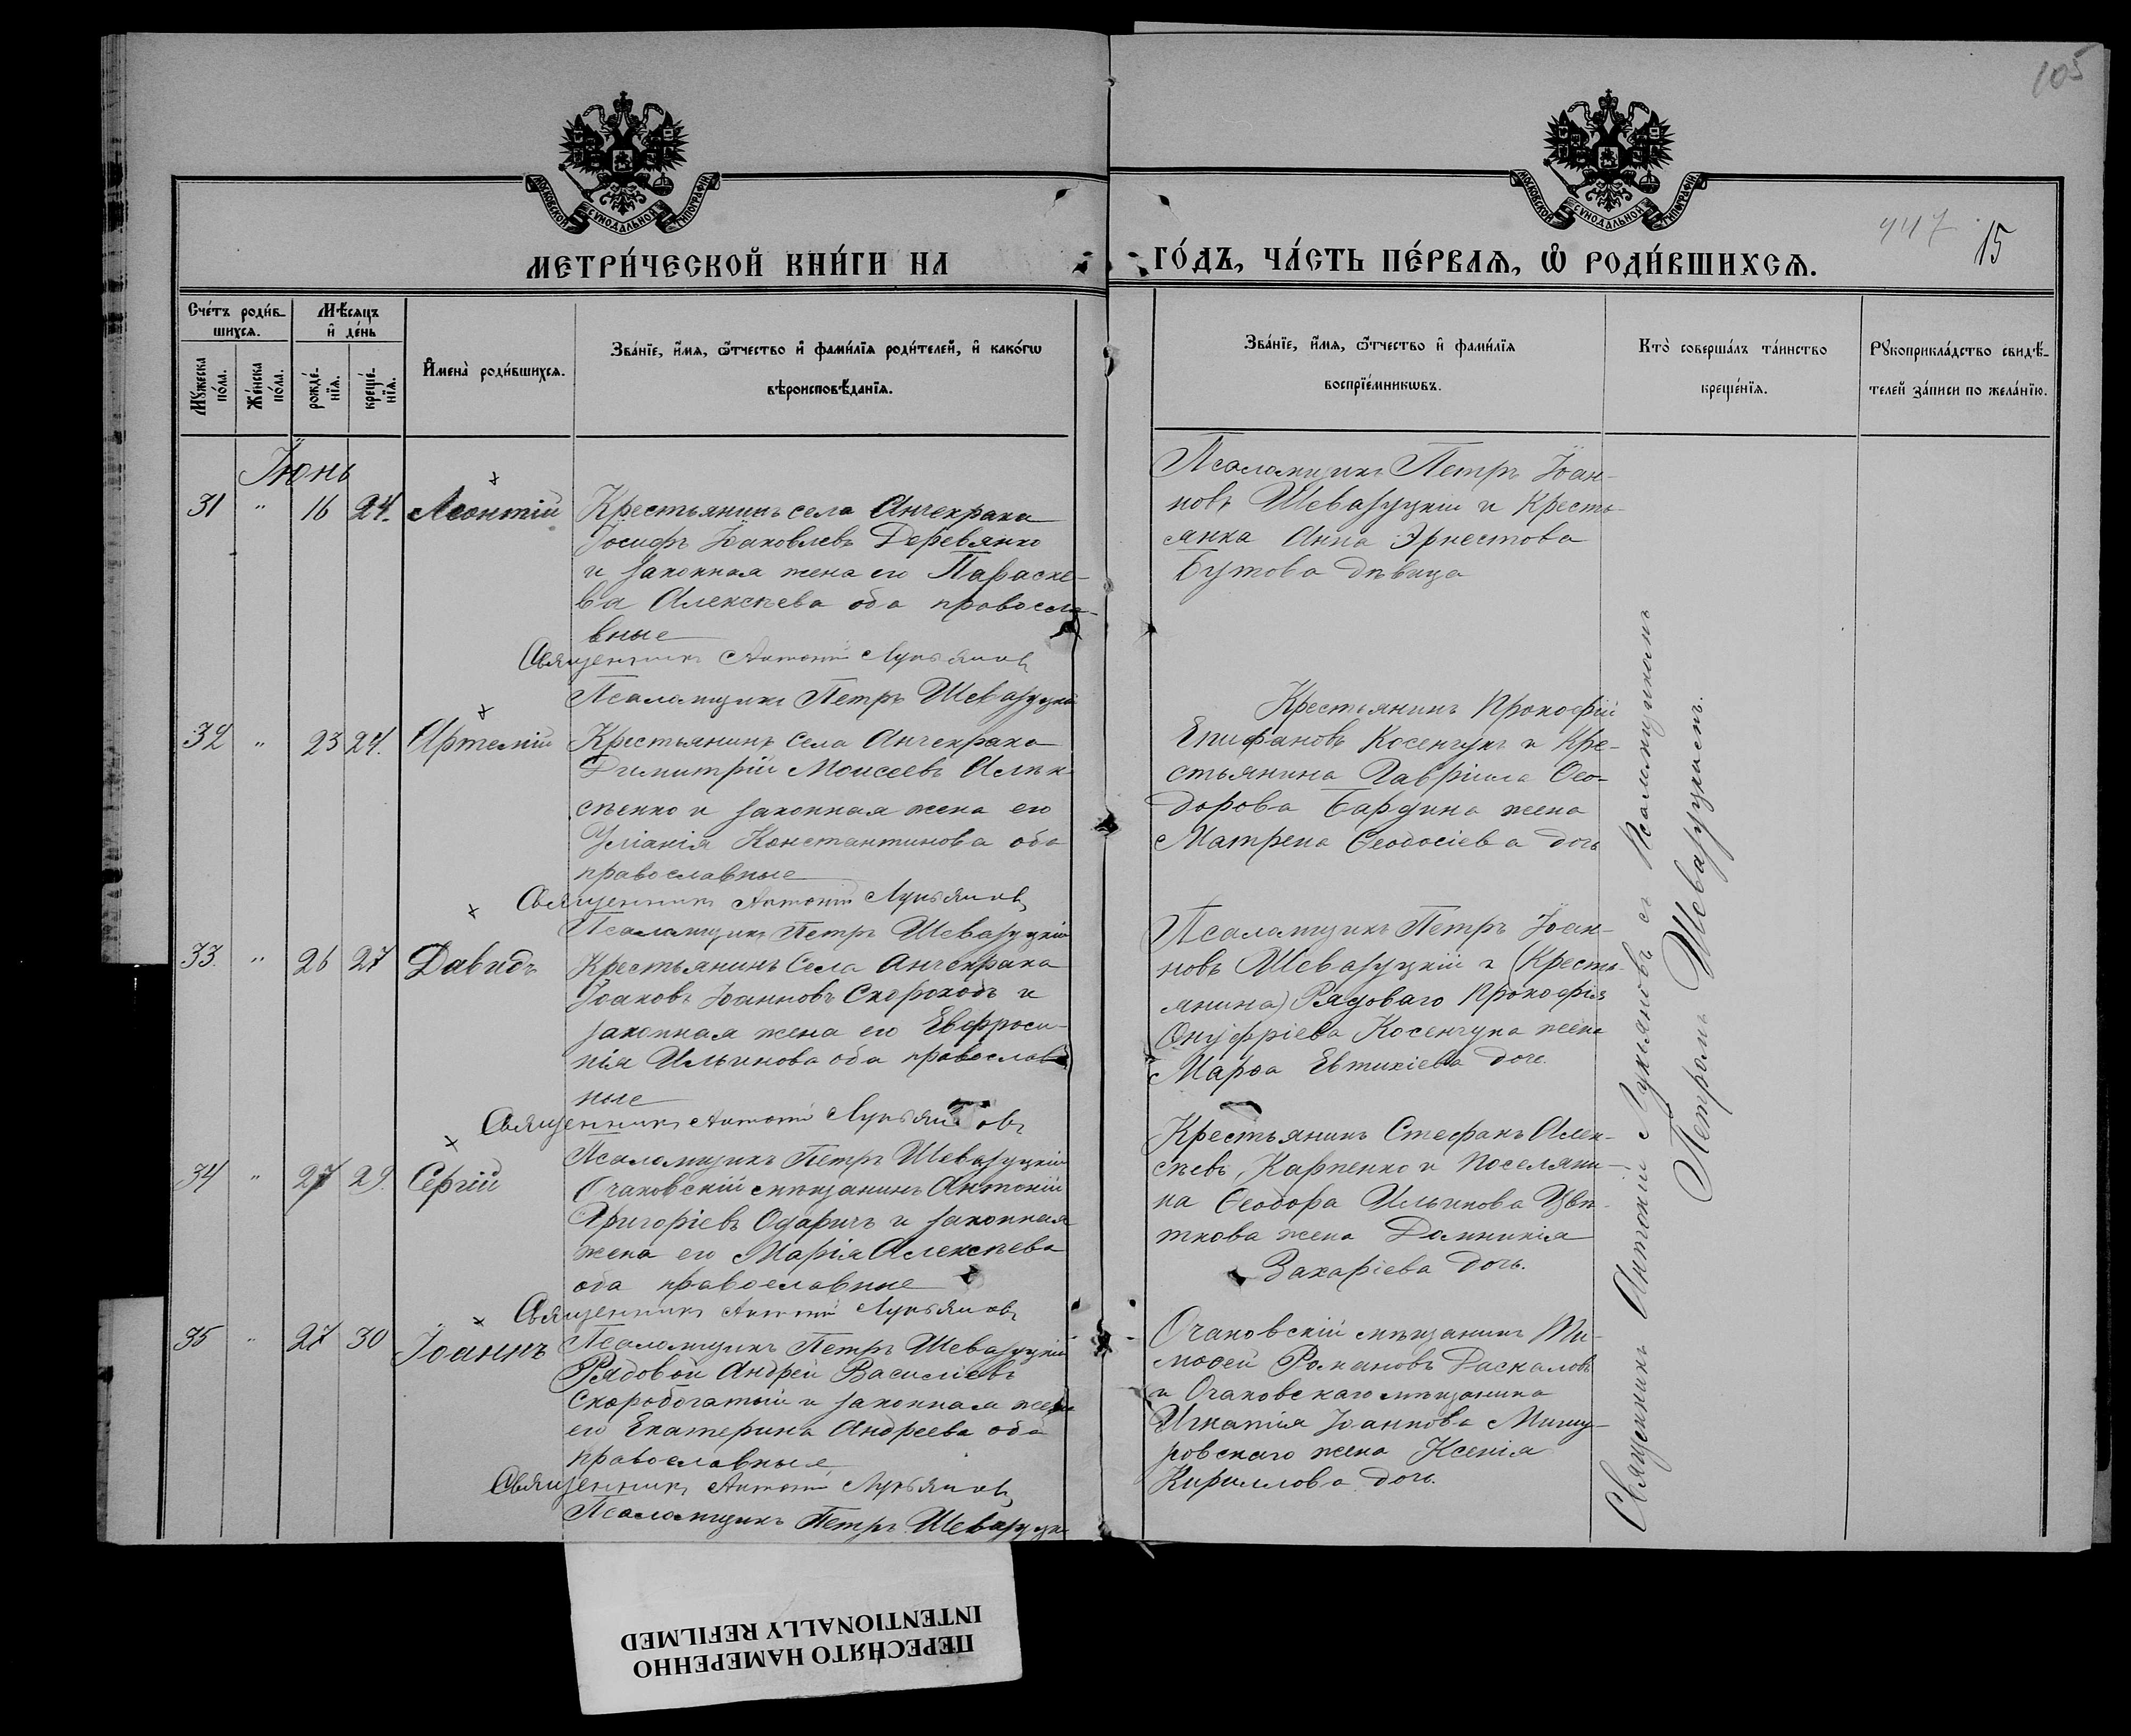 105
МОСКОВСКОЙ СѴНОДАЛЬНОЙ ТИПОГРАФІИ
МОСКОВСКОЙ СѴНОДАЛЬНОЙ ТИПОГРАФІИ
447 15
МЕТРИ́ЧЕСКОЙ КНИ́ГИ НА ГО́ДЪ, ЧА́СТЬ ПЕ́РВАѦ, Ѽ РОДИ́ВШИХСѦ.
Сче́тъ роди́в-
шихсѧ.
Мѣ́сѧцъ
и҆ де́нь
Мꙋ́жеска
по́ла.
Же́нска
по́ла.
рожде́-
нїѧ.
креще́-
нїѧ.
И҆мена̀ роди́вшихсѧ.
Зва́нїе, и҆́мѧ, ѻ҆́тчество и҆ фами́лїѧ роди́телей, и҆ како́гѡ
вѣроисповѣ́данїѧ.
Зва́нїе, и҆́мѧ, ѻ҆́тчество и҆ фами́лїѧ
воспрїе́мникѡвъ.
Кто̀ соверша́лъ та́инство
креще́нїѧ.
Рꙋкоприкла́дство свидѣ́-
телей за́писи по жела́нїю.
Іюнь
31 " 16 24. Леонтій
Крестьянинъ села Анчекрака
Іосифъ Іаковлевъ Деревянко
и законная жена его Параске-
ва Алексѣева оба правосла-
вные
Священникъ Антоній Лукьяновъ
Псаломщикъ Петръ Шевазуцкій
Псаломщикъ Петръ Іоан-
новъ Шевазуцкій и кресть-
янка Анна Эрнестова
Бутова дѣвица
32 " 23 24. Артемій
Крестьянинъ села Анчекрака
Димитрій Моисеевъ Алек-
сѣенко и законная жена его
Уліанія Константинова оба
православные
Священникъ Антоній Лукьяновъ
Псаломщикъ Петръ Шевазуцкій
Крестьянинъ Прокофій
Епифановъ Косенчукъ и кре-
стьянина Гавріила Ѳео-
дорова Бардина жена
Матрена Ѳеодосіева дочь
33. " 26 27 Давидъ
Крестьянинъ села Анчекрака
Іоаковъ Іоанновъ Скороходъ и
законная жена его Евфроси-
нія Ильинова оба православ-
ные
Священникъ Антоній Лукьяновъ
Псаломщикъ Петръ Шевазуцкій
Псаломщикъ Петръ Іоан-
новъ Шевазуцкій и (кресть-
янина) Рядоваго Прокофія
Онуфріева Косенчука жена
Марѳа Евтихіева дочь.
34 " 27 29. Сергій
Очаковскій мѣщанинъ Антоній
Григоріевъ Одаричъ и законная
жена его Марія Алексѣева
оба православные
Священникъ Антоній Лукьяновъ
Псаломщикъ Петръ Шевазуцкій
Крестьянинъ Стефанъ Алек-
сѣевъ Карпенко и поселяни-
на Ѳеодора Ильинова Цвѣ-
ткова жена Домникія
Захаріева дочь.
35 " 27 30 Іоаннъ
Рядовой Андрей Василіевъ
Скоробогатый и законная жена
его Екатерина Андреева оба
православные
Священникъ Антоній Лукьяновъ
Псаломщикъ Петръ Шевазуцкій
Очаковскій мѣщанинъ Ти-
моѳей Романовъ Даскаловъ
и Очаковскаго мѣщанина
Игнатія Іоаннова Мишу-
ровскаго жена Ксенія
Кириллова дочь.
Священникъ Антоній Лукьяновъ съ Псаломщикомъ
Петромъ Шевазуцкимъ.
ПЕРЕСНЯТО НАМЕРЕННО
INTENTIONALLY REFILMED